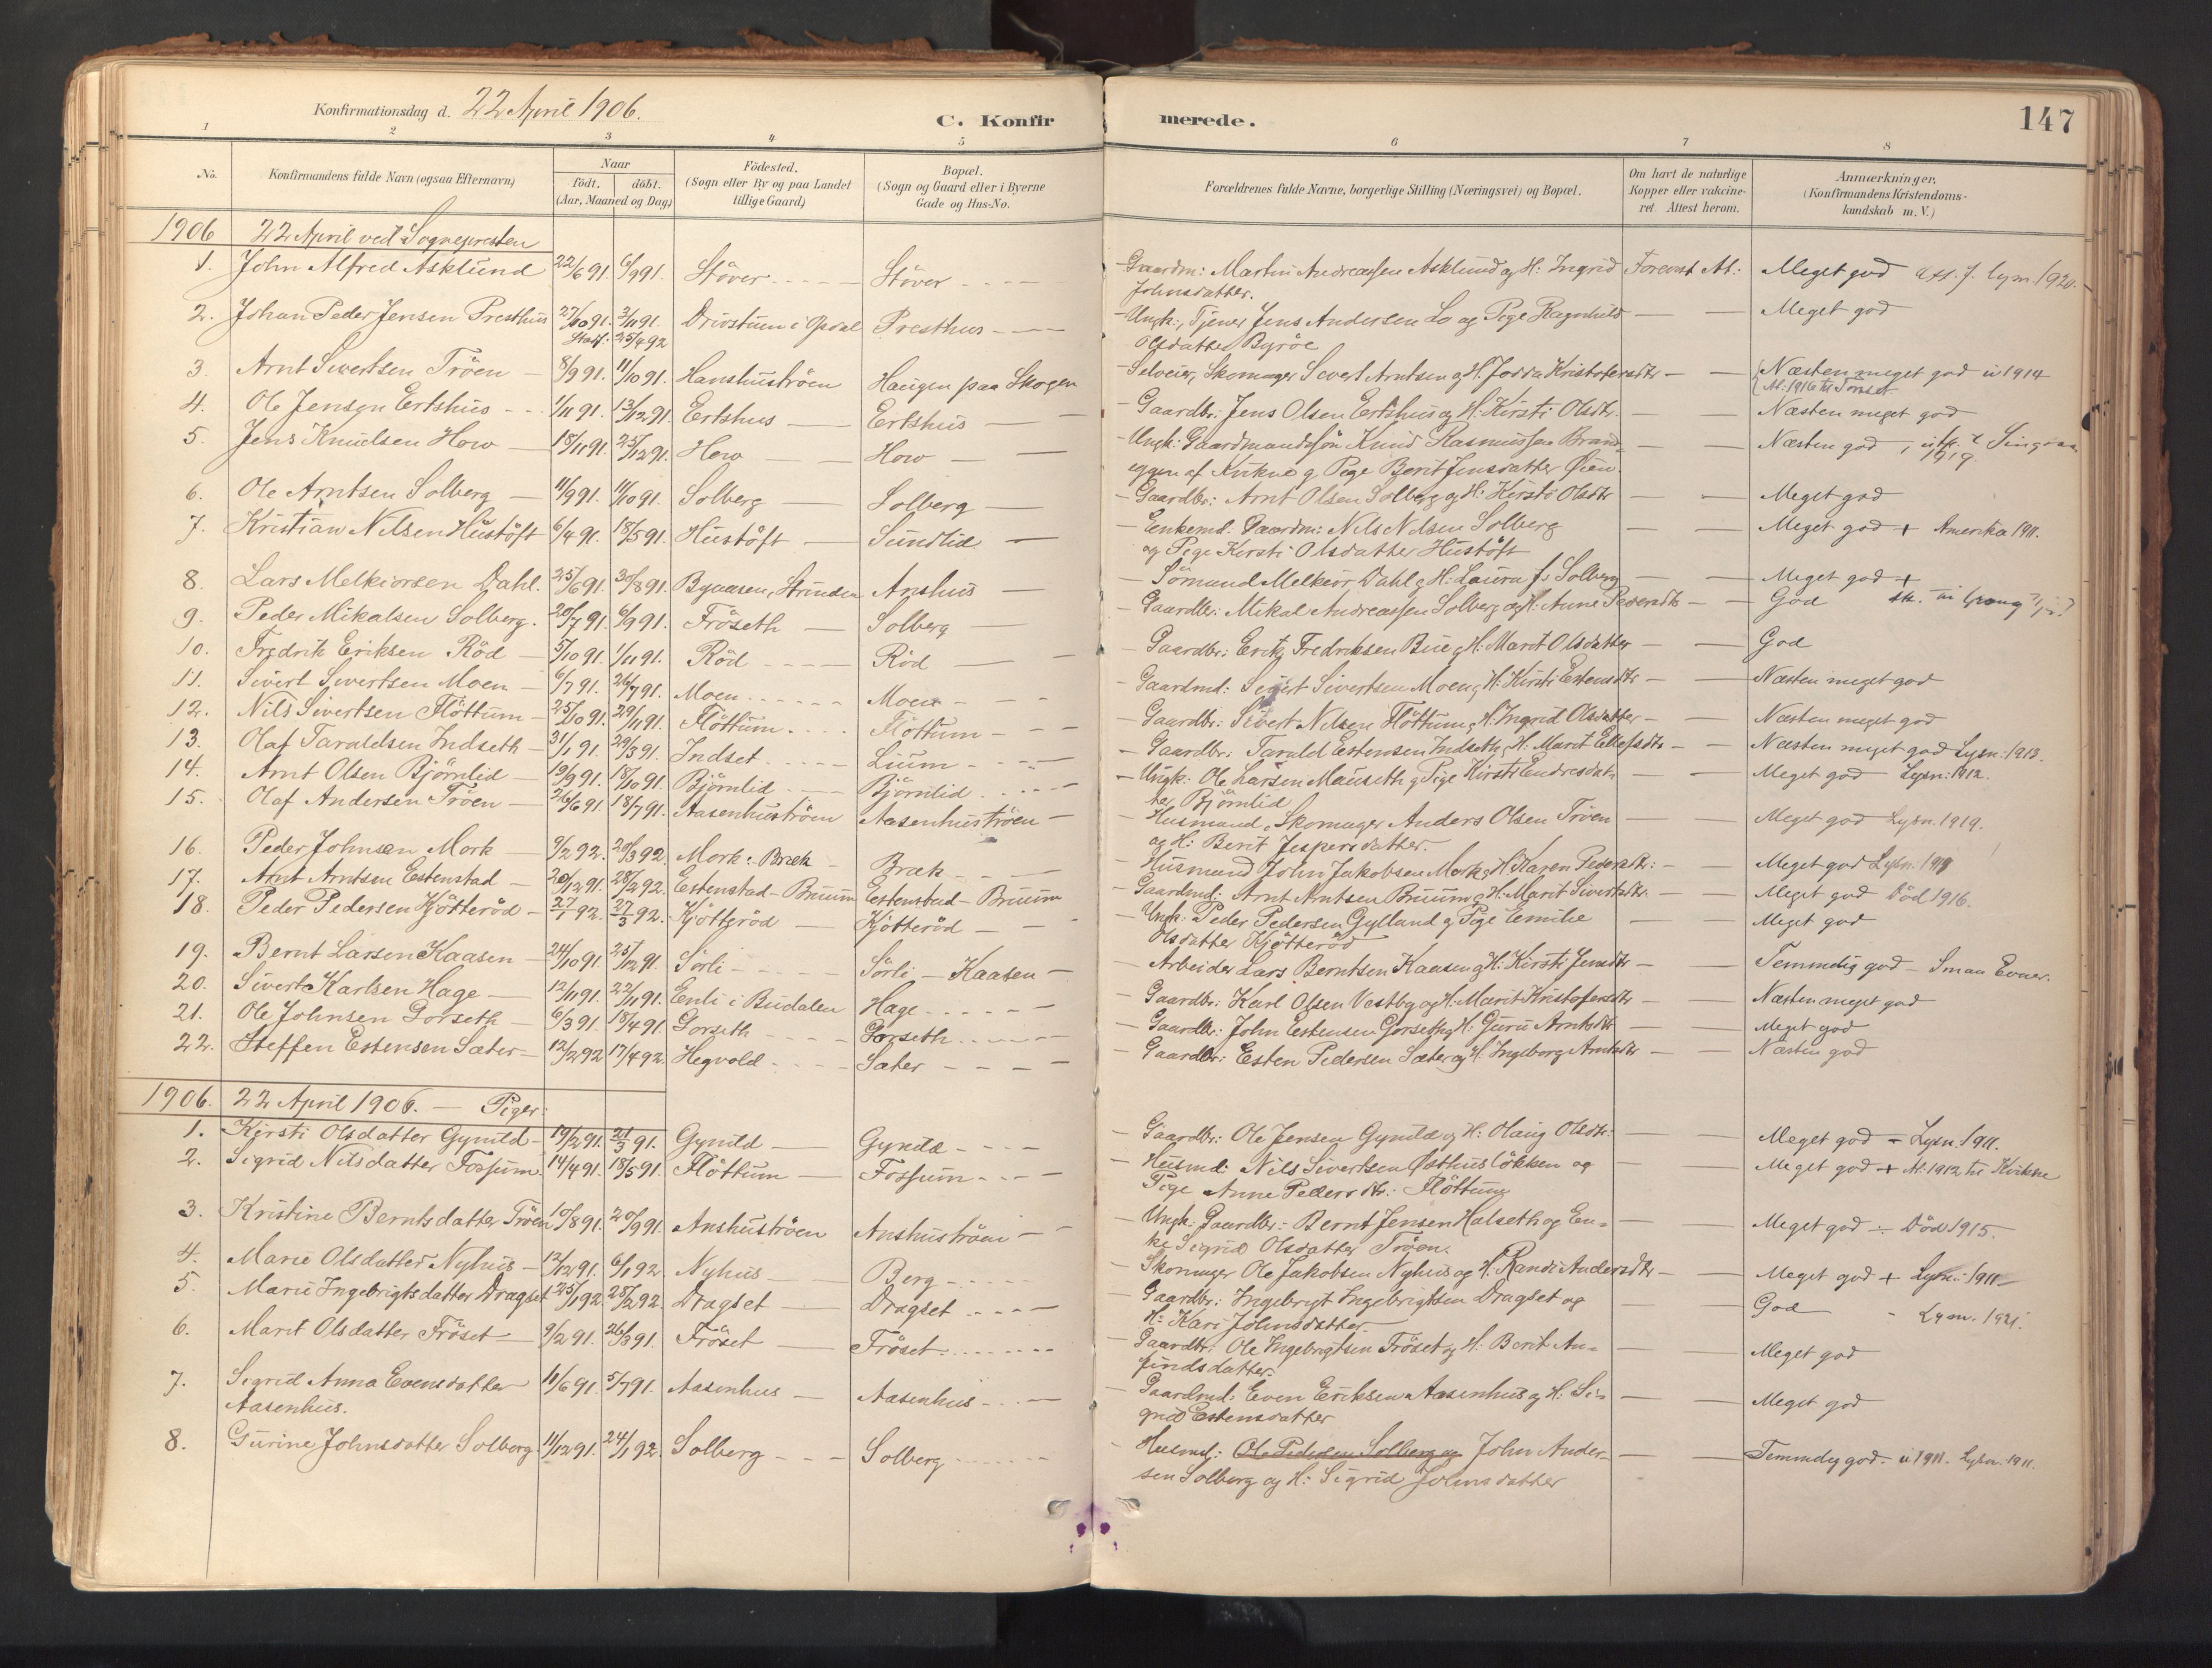 Konfirmationsdag d. 22 April 1906.
C. Konfirmerede.
147
1 2 3 4 5 6 7 8
No. | Konfirmandens fulde Navn (ogsaa Efternavn) | Naar födt. döbt. (Aar, Maaned og Dag) | Födested. (Sogn eller By og paa Landet tillige Gaard) | Bopæl. (Sogn og Gaard eller i Byerne Gade og Hus-No. | Forældrenes fulde Navne, borgerlige Stilling (Næringsvei) og Bopæl. | Om havt de naturlige Kopper eller vakcineret. Attest herom. | Anmærkninger. (Konfirmandens Kristendomskundskab m. V.)
1906 22 April ved Sognepresten
1. John Alfred Asklund 22/6 91. 6/9 91. Stöver Stöver Gaardm: Martin Andreassen Asklund og H: Ingrid Forevist At.: Meget god att. f. lysn. 1920.
Johnsdatter.
2. Johan Peder Jensen Presthus 27/10 91. 3/11 91. Drivstuen i Opdal Presthus Ungk:, Tjener Jens Andersen Lo og Pige Ragnhild Meget god
Stadf: 25/4 92 Olsdatter Byröe
3. Arnt Sivertsen Tröen 8/9 91. 11/10 91. Hanshuströen Haugen paa Skogen Selveier, Skomager Sivert Arntsen og H. Jodda Kristofersdtr Næsten meget god u 1914
At. 1916 til Tönset.
4. Ole Jensen Ertshus 1/11 91. 13/12 91. Ertshus Ertshus Gaardbr: Jens Olsen Ertshus og H: Kirsti Olsdtr. Næsten meget god
5. Jens Knudsen Hov 18/11 91. 25/12 91. Hov Hov Ungk: Gaardmandssön Knud Rasmussen Brand- Næsten god, utfl. t. Singsaas 1919.
eggen af Kvikne og Pige Berit Jensdatter Öien
6. Ole Arntsen Solberg 11/9 91. 11/10 91. Solberg Solberg Gaardbr: Arnt Olsen Solberg og H: Kirsti Olsdtr Meget god
7. Kristian Nilsen Hustöft 6/4 91. 18/5 91. Hustöft Sundlid Enkemd. Gaardm: Nils Nilsen Solberg Meget god + Amerika 1911.
og Pige Kirsti Olsdatter Hustöft
8. Lars Melkiorsen Dahl. 25/6 91. 30/8 91. Byaasen, Strinden Anshus Sömand Melkior Dahl og H: Laura f: Solberg Meget god +
9. Peder Mikalsen Solberg. 20/7 91. 6/9 91. Fröseth Solberg Gaardbr: Mikal Andreassen Solberg og H: Anne Pedersdtr God
10. Fredrik Eriksen Röd 5/10 91. 1/11 91. Röd Röd Gaardbr: Erik Fredriksen Bue og H: Marit Olsdatter God
11. Sivert Sivertsen Moen 6/7 91. 26/7 91. Moen Moen Gaardmd: Sivert Sivertsen Moen og H: Kirsti Estensdtr Næsten meget god
12. Nils Sivertsen Flöttum 25/10 91. 29/11 91. Flöttum Flöttum Gaardbr: Sivert Nilsen Flöttum og H: Ingrid Olsdatter Næsten meget god
13. Olaf Taraldsen Indseth 31/1 91. 29/3 91. Indset Lium Gaardbr: Tarald Estensen Indseth og H: Marit Ellefsdtr Næsten meget god Lysn. 1913.
14. Arnt Olsen Björnlid 13/9 91. 18/10 91. Björnlid Björnlid Ungk: Ole Larsen Mauseth og Pige Kirsti Endresdat- Meget god Lysn: 1912.
ter Björnlid
15. Olaf Andersen Tröen 26/6 91. 18/7 91. Aasenhuströen Aasenhuströen Husmand, Skomager Anders Olsen Tröen Meget god Lysn. 1919.
og H: Berit Jespersdatter.
16. Peder Johnsen Mork 9/2 92. 20/3 92. Mork: Bræk Bræk Husmand John Jakobsen Mork og H: Karen Pedersdtr: Meget god Lysn.
17. Arnt Arntsen Estenstad 20/12 91. 28/2 92. Estenstad-Bruum Estenstad-Bruum Gaardmd: Arnt Arntsen Bruum og H: Marit Sivertsdtr. Meget god Död 1916.
18. Peder Pedersen Kjötteröd 27/1 92. 27/3 92. Kjötteröd Kjötteröd Ungk: Peder Pedersen Gylland og Pige Emilie Meget god
Olsdatter Kjötteröd
19. Bernt Larsen Kaasen 24/10 91. 25/12 91. Sörli Sörli - Kaasen Arbeider Lars Berntsen Kaasen og H: Kirsti Jensdtr Temmelig god - Smaa Evner.
20. Sivert Karlsen Hage 12/11 91. 22/11 91. Enli i Budalen Hage Gaardbr: Karl Olsen Vestby og H: Marit Kristofersdtr Næsten meget god
21. Ole Johnsen Gorseth 6/3 91. 18/4 91. Gorseth Gorseth Gaardbr: John Estensen Gorseth og H: Guru Arntsdtr Meget god
22. Steffen Estensen Sæter 12/2 92 17/4 92. Hegvold Sæter Gaardbr: Esten Pedersen Sæter og H. Ingeborg Arntsdtr Næsten god
1906. 22 April 1906. - Piger:
1. Kirsti Olsdatter Gynild 19/2 91. 21/3 91. Gynild Gynild Gaardbr: Ole Jensen Gynild og H: Olaug Olsdtr: Meget god - Lysn. 1911.
2. Sigrid Nilsdatter Fossum. 14/4 91. 18/5 91. Flöttum Fossum Husmd: Nils Sivertsen Östhuslökken og Meget god + At. 1912 til Kvikne
Pige Anne Pedersdtr: Flöttum
3. Kristine Berntsdatter Tröen 10/8 91. 20/9 91. Anshuströen Anshuströen Ungk. Gaardbr: Bernt Jensen Halseth og En- Meget god Död 1915.
ke Sigrid Olsdatter Tröen.
4. Marie Olsdatter Nyhus 12/12 91. 6/1 92 Nyhus Berg Skomager Ole Jakobsen Nyhus og H: Randi Andersdtr Meget god + Lysn: 1911
5. Marie Ingebrigtsdatter Dragset 25/1 92 28/2 92. Dragset Dragset Gaardbr: Ingebrigt Ingebrigtsen Dragset og God - Lysn. 1921.
H: Kari Johnsdatter.
6. Marit Olsdatter Fröset 9/2 91. 26/3 91. Fröset Fröset Gaardbr. Ole Ingebrigtsen Fröset og H: Berit An- Meget god
findsdatter.
7. Sigrid Anna Evensdatter 11/6 91. 5/7 91. Aasenhus Aasenhus Gaardmd: Even Eriksen Aasenhus og H: Si- Meget god
Aasenhus. grid Estensdatter
8. Gurine Johnsdatter Solberg. 11/12 91. 24/1 92. Solberg Solberg Husmd: Ole Pedersen Solberg og John Ander- Temmelig god. - u 1911. Lysn. 1911.
sen Solberg og H: Sigrid Johnsdatter